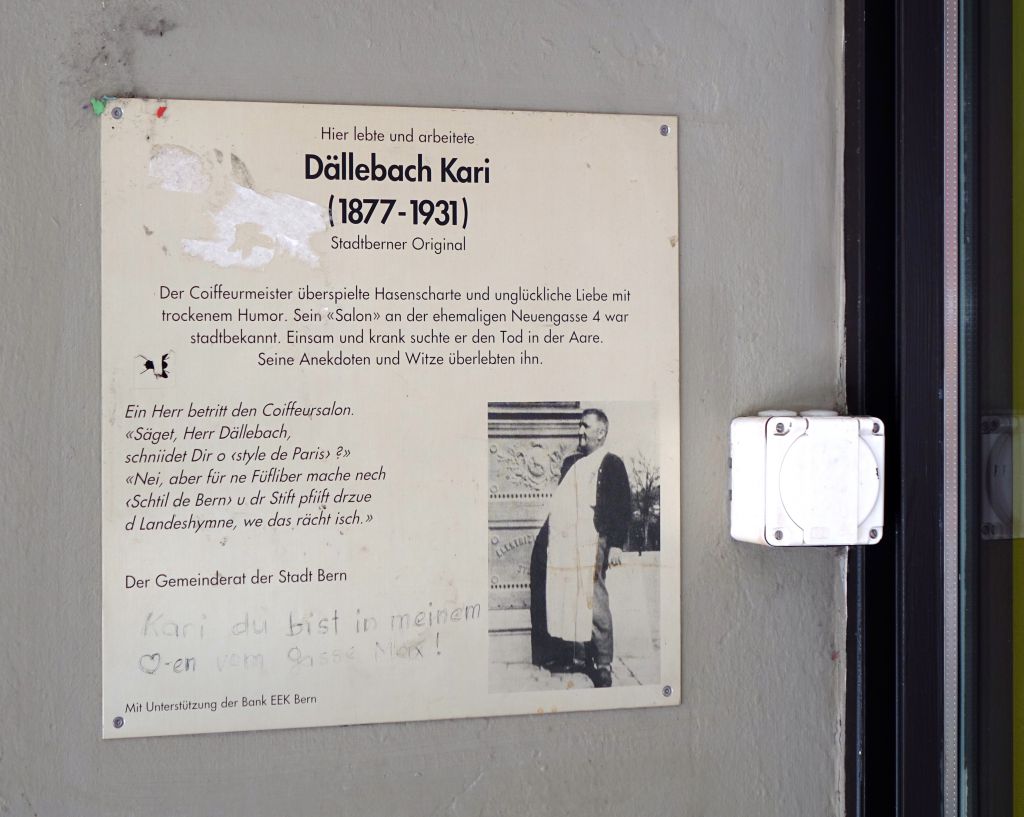 Hier lebte und arbeitete
Dällebach Kari
(1877-1931)
Stadtberner Original
Der Coiffeurmeister überspielte Hasenscharte und unglückliche Liebe mit
trockenem Humor. Sein «Salon» an der ehemaligen Neuengasse 4 war
stadtbekannt. Einsam und krank suchte er den Tod in der Aare.
Seine Anekdoten und Witze überlebten ihn.
Ein Herr betritt den Coiffeursalon.
«Säget, Herr Dällebach,
schniidet Dir o ‹style de Paris› ?»
«Nei, aber für ne Füfliber mache nech
‹Schtil de Bern› u dr Stift pfiift drzue
d Landeshymne, we das rächt isch.»
Der Gemeinderat der Stadt Bern
Kari du bist in meinem
♡-en vom Gasse Max!
Mit Unterstützung der Bank EEK Bern